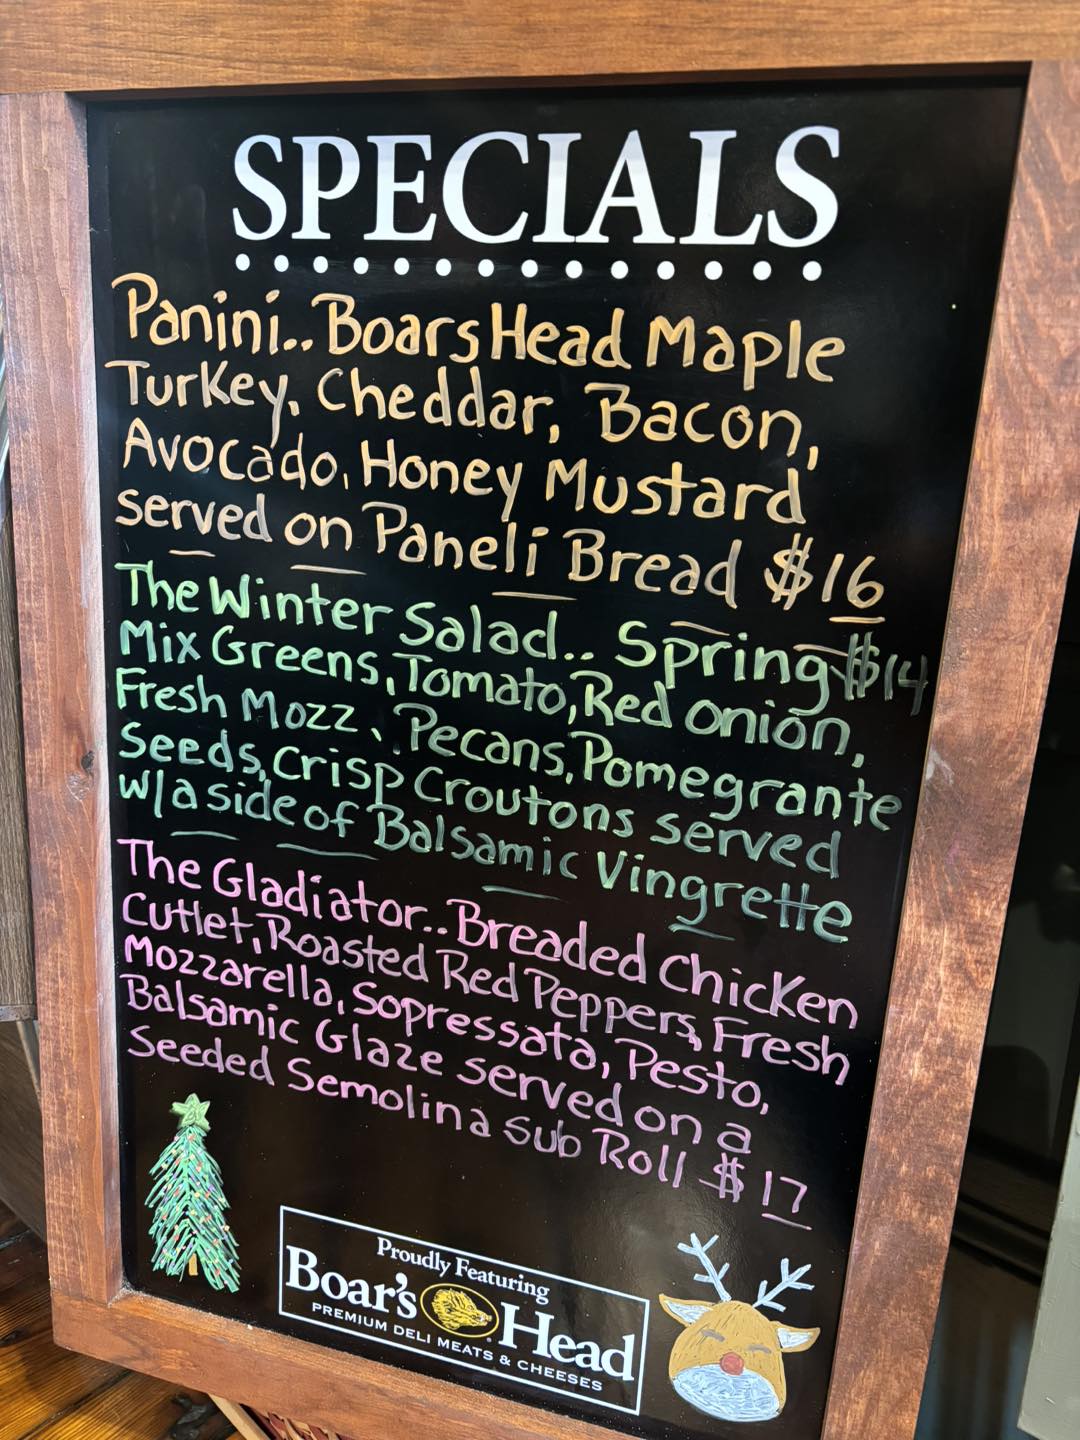 SPECIALS
Panini.. Boars Head Maple
Turkey, Cheddar, Bacon,
Avocado, Honey Mustard
served on Paneli Bread $16
The Winter Salad.. Spring $14
Mix Greens, Tomato, Red onion,
Fresh Mozz, Pecans, Pomegrante
Seeds, Crisp Croutons served
w/a side of Balsamic Vingrette
The Gladiator.. Breaded Chicken
Cutlet, Roasted Red Peppers, Fresh
Mozzarella, Sopressata, Pesto,
Balsamic Glaze served on a
Seeded Semolina Sub Roll $17
Proudly Featuring
Boar's Head
PREMIUM DELI MEATS & CHEESES